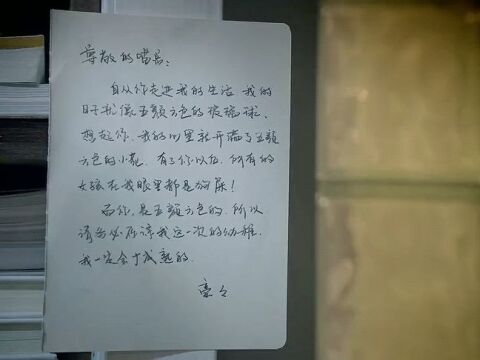 尊敬的喵昜：
自从你走进我的生活，我的
日子就像五颜六色的玻璃球，
想起你，我的心里就开满了五颜
六色的小花，有了你以后，所有的
女孩在我眼里都是狗屎！
而你，是五颜六色的，所以
请务必原谅我这一次的幼稚，
我一定会十成熟的。
豪々